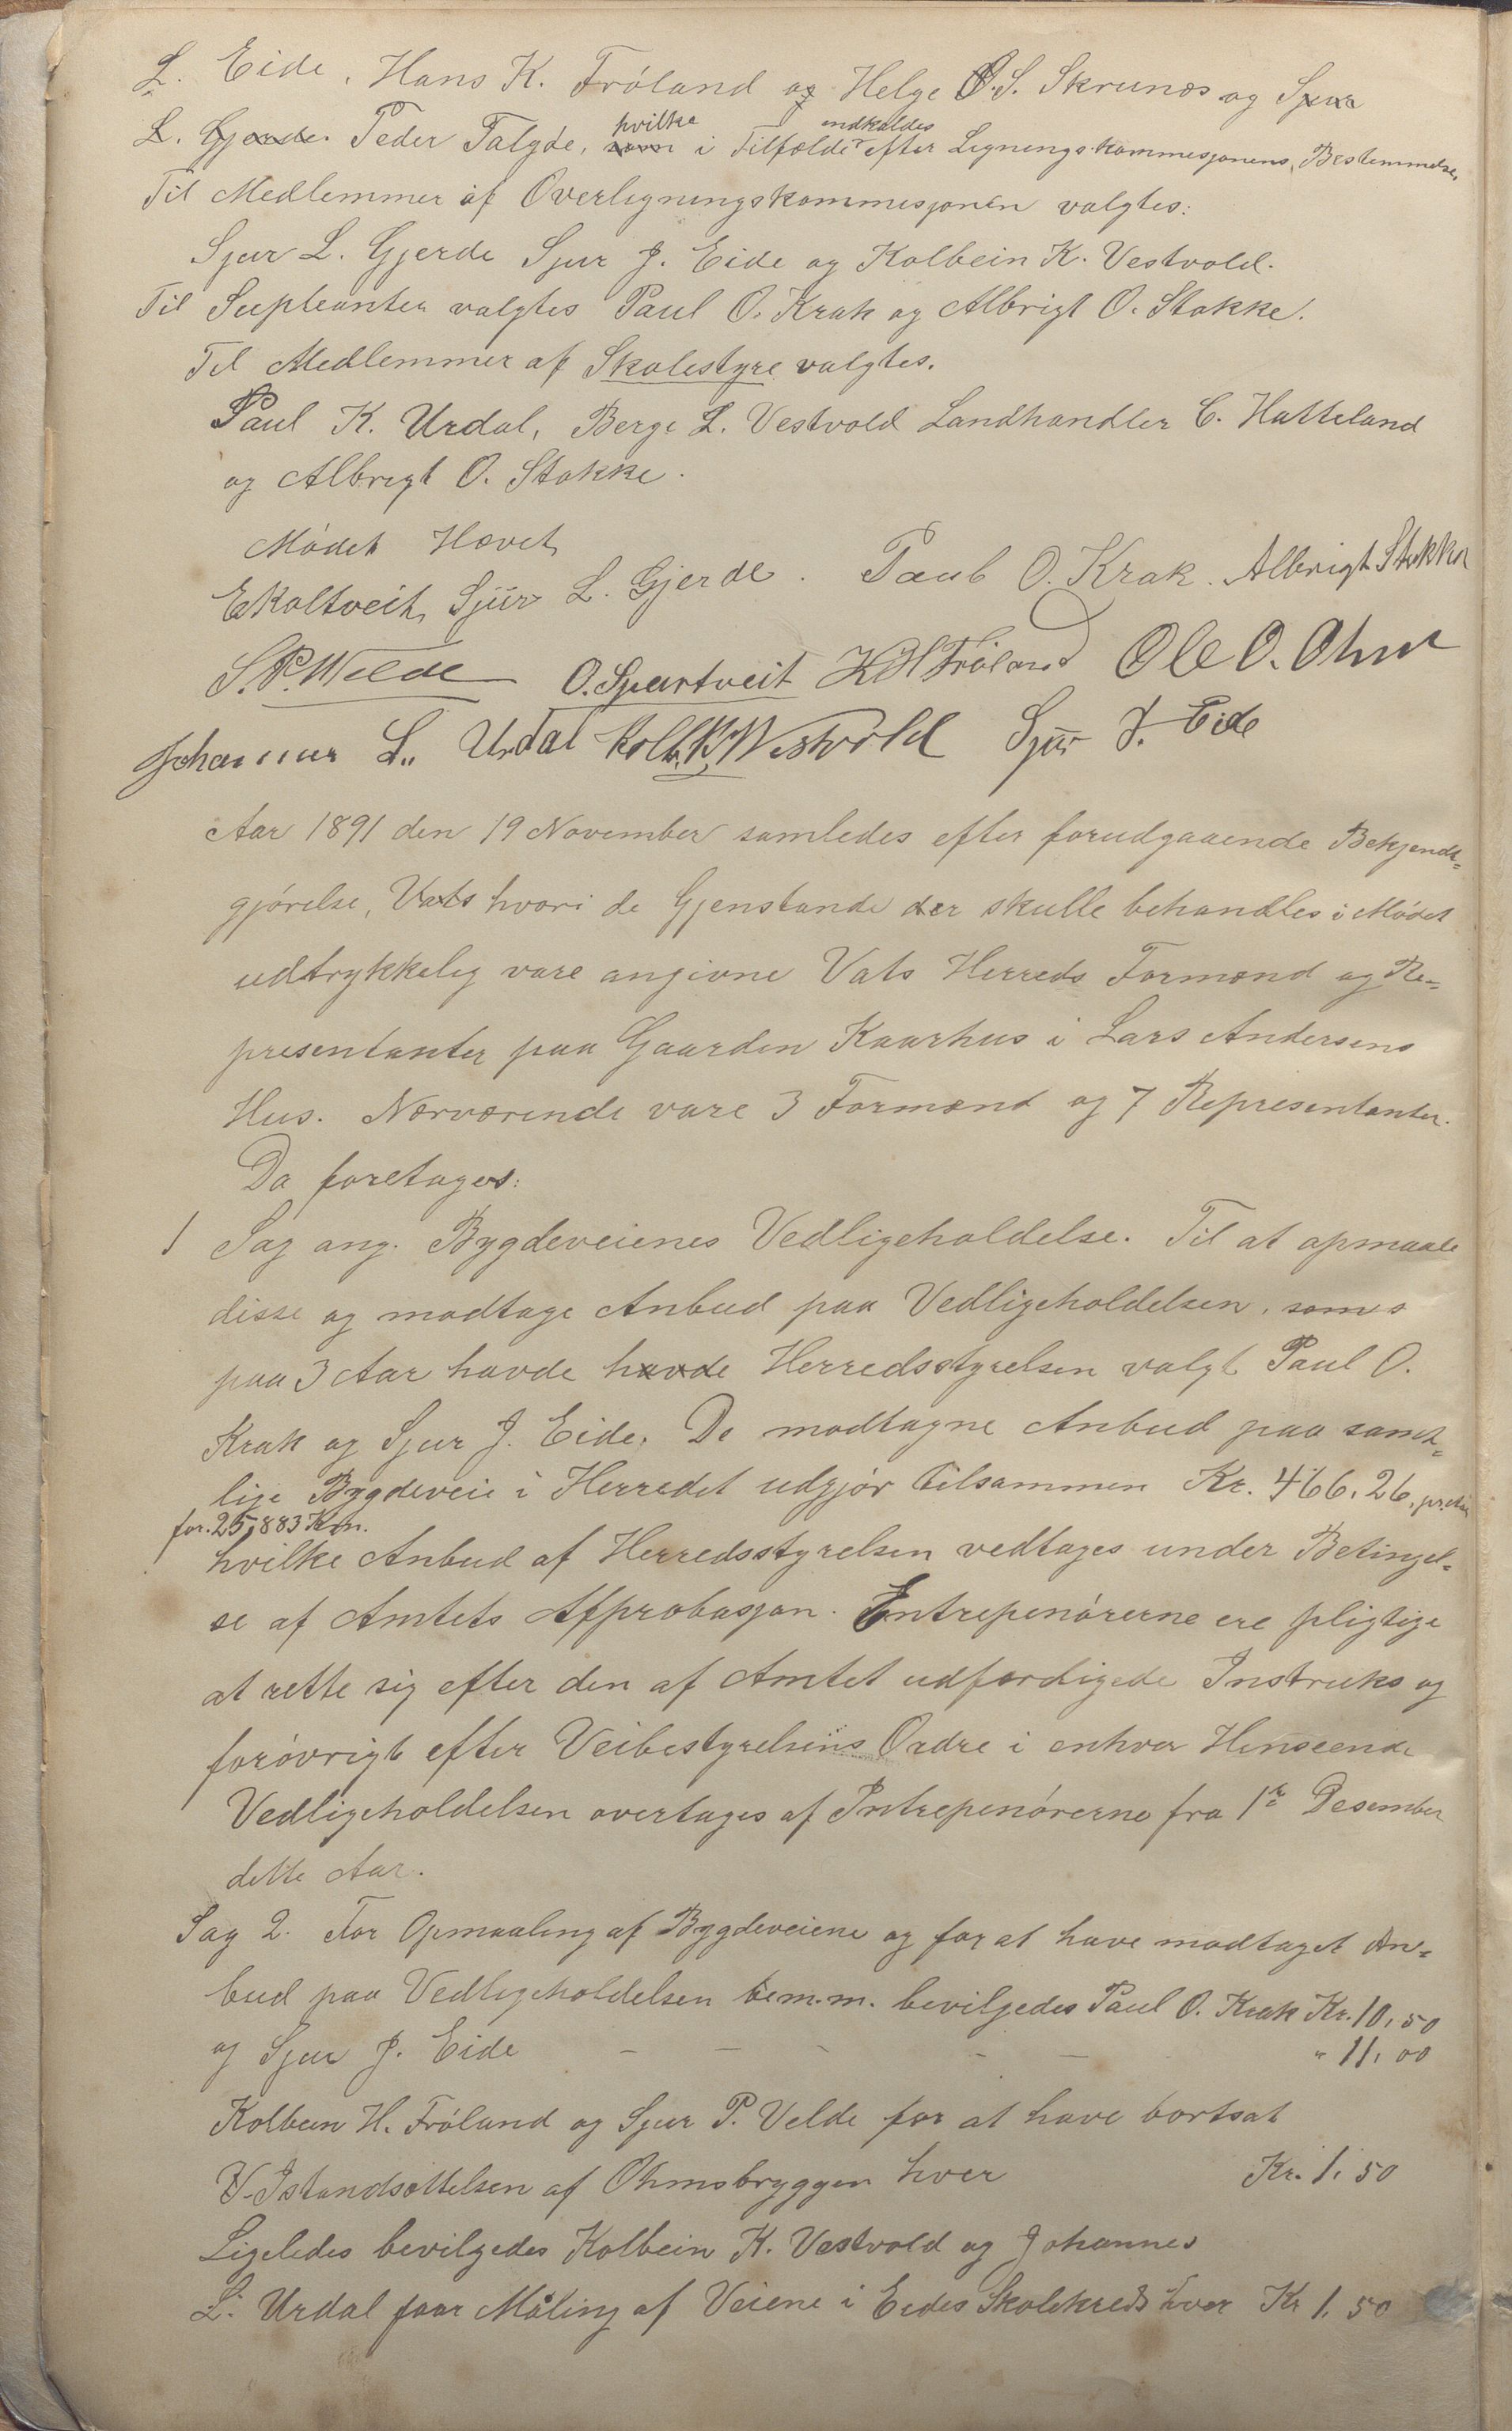 L. Eide, Hans K. Fróland og Helge O.S. Skrunes og Sjur
L. Gjerde. Peder Talgde, som hvilke i Tilfælde indkaldes efter Lignings-kommisjonens Bestemmelse,
Til Medlemmer af Overligningskommisjonen valgtes:
Sjur L. Gjerde Sjur J. Eide og Kolbein K. Vestvold.
Til Supleanter valgtes Paul O. Krak og Albrigt O. Stokke.
Til Medlemmer af Skolestyre valgtes.
Paul K. Urdal, Berge L. Vestvold Landhandler C. Hatteland
og Albrigt O. Stokke.
Mødet Hævet
E Koltveit, Sjur L. Gjerde. Paul O. Krak. Albrigt Stokke
S.P. Welde O. Spartveit K H Fröland Ole O. Ohm
Johannes L. Urdal Kolb. K. Westvold Sjur J. Eide
Aar 1891 den 19 November samledes efter forudgaaende Bekjendt=
gjørelse, Vats hvori de Gjenstande der skulle behandles i Mødet
udtrykkelig vare angivne Vats Herreds Formænd og Re=
presentanter paa Gaarden Kaarhus i Lars Andersens
Hus. Nærværende vare 3 Formænd og 7 Representanter.
Da foretages:
1 Sag ang. Bygdeveienes Vedligeholdelse. Til at opmaale
disse og modtage Anbud paa Vedligeholdelsen, soms
paa 3 Aar havde havde Herredsstyrelsen valgt Paul O.
Krak og Sjur J. Eide, De modtagne Anbud paa samt=
lige Bygdeveie i Herredet udgjør tilsammen Kr. 466,26, pr. Aar
for. 25,883 Km.
hvilke Anbud af Herredsstyrelsen vedtages under Betingel=
se af Amtets Approbasjon. Entrepenørerne ere pligtige
at rette sig efter den af Amtet udfærdigede Instruks og
forøvrigt efter Veibestyrelsens Ordre i enhver Henseende
Vedligeholdelsen overtages af Intrepenørerne fra 1ste Desember
dette Aar.
Sag 2. For Opmaaling af Bygdeveiene og for at have modtaget An=
bud paa Vedligeholdelsen m.m. bevilgedes Paul O. Krak Kr. 10,50
og Sjur J. Eide - - - - - " 11,00
Kolbein H. Fróland og Sjur P. Velde for at have bortsat
Istandsættelsen af Ohmsbryggen hver Kr. 1,50
Ligeledes bevilgedes Kolbein K. Vestvold og Johannes
L. Urdal faar Måling af Veiene i Eides Skolekreds hver Kr 1,50